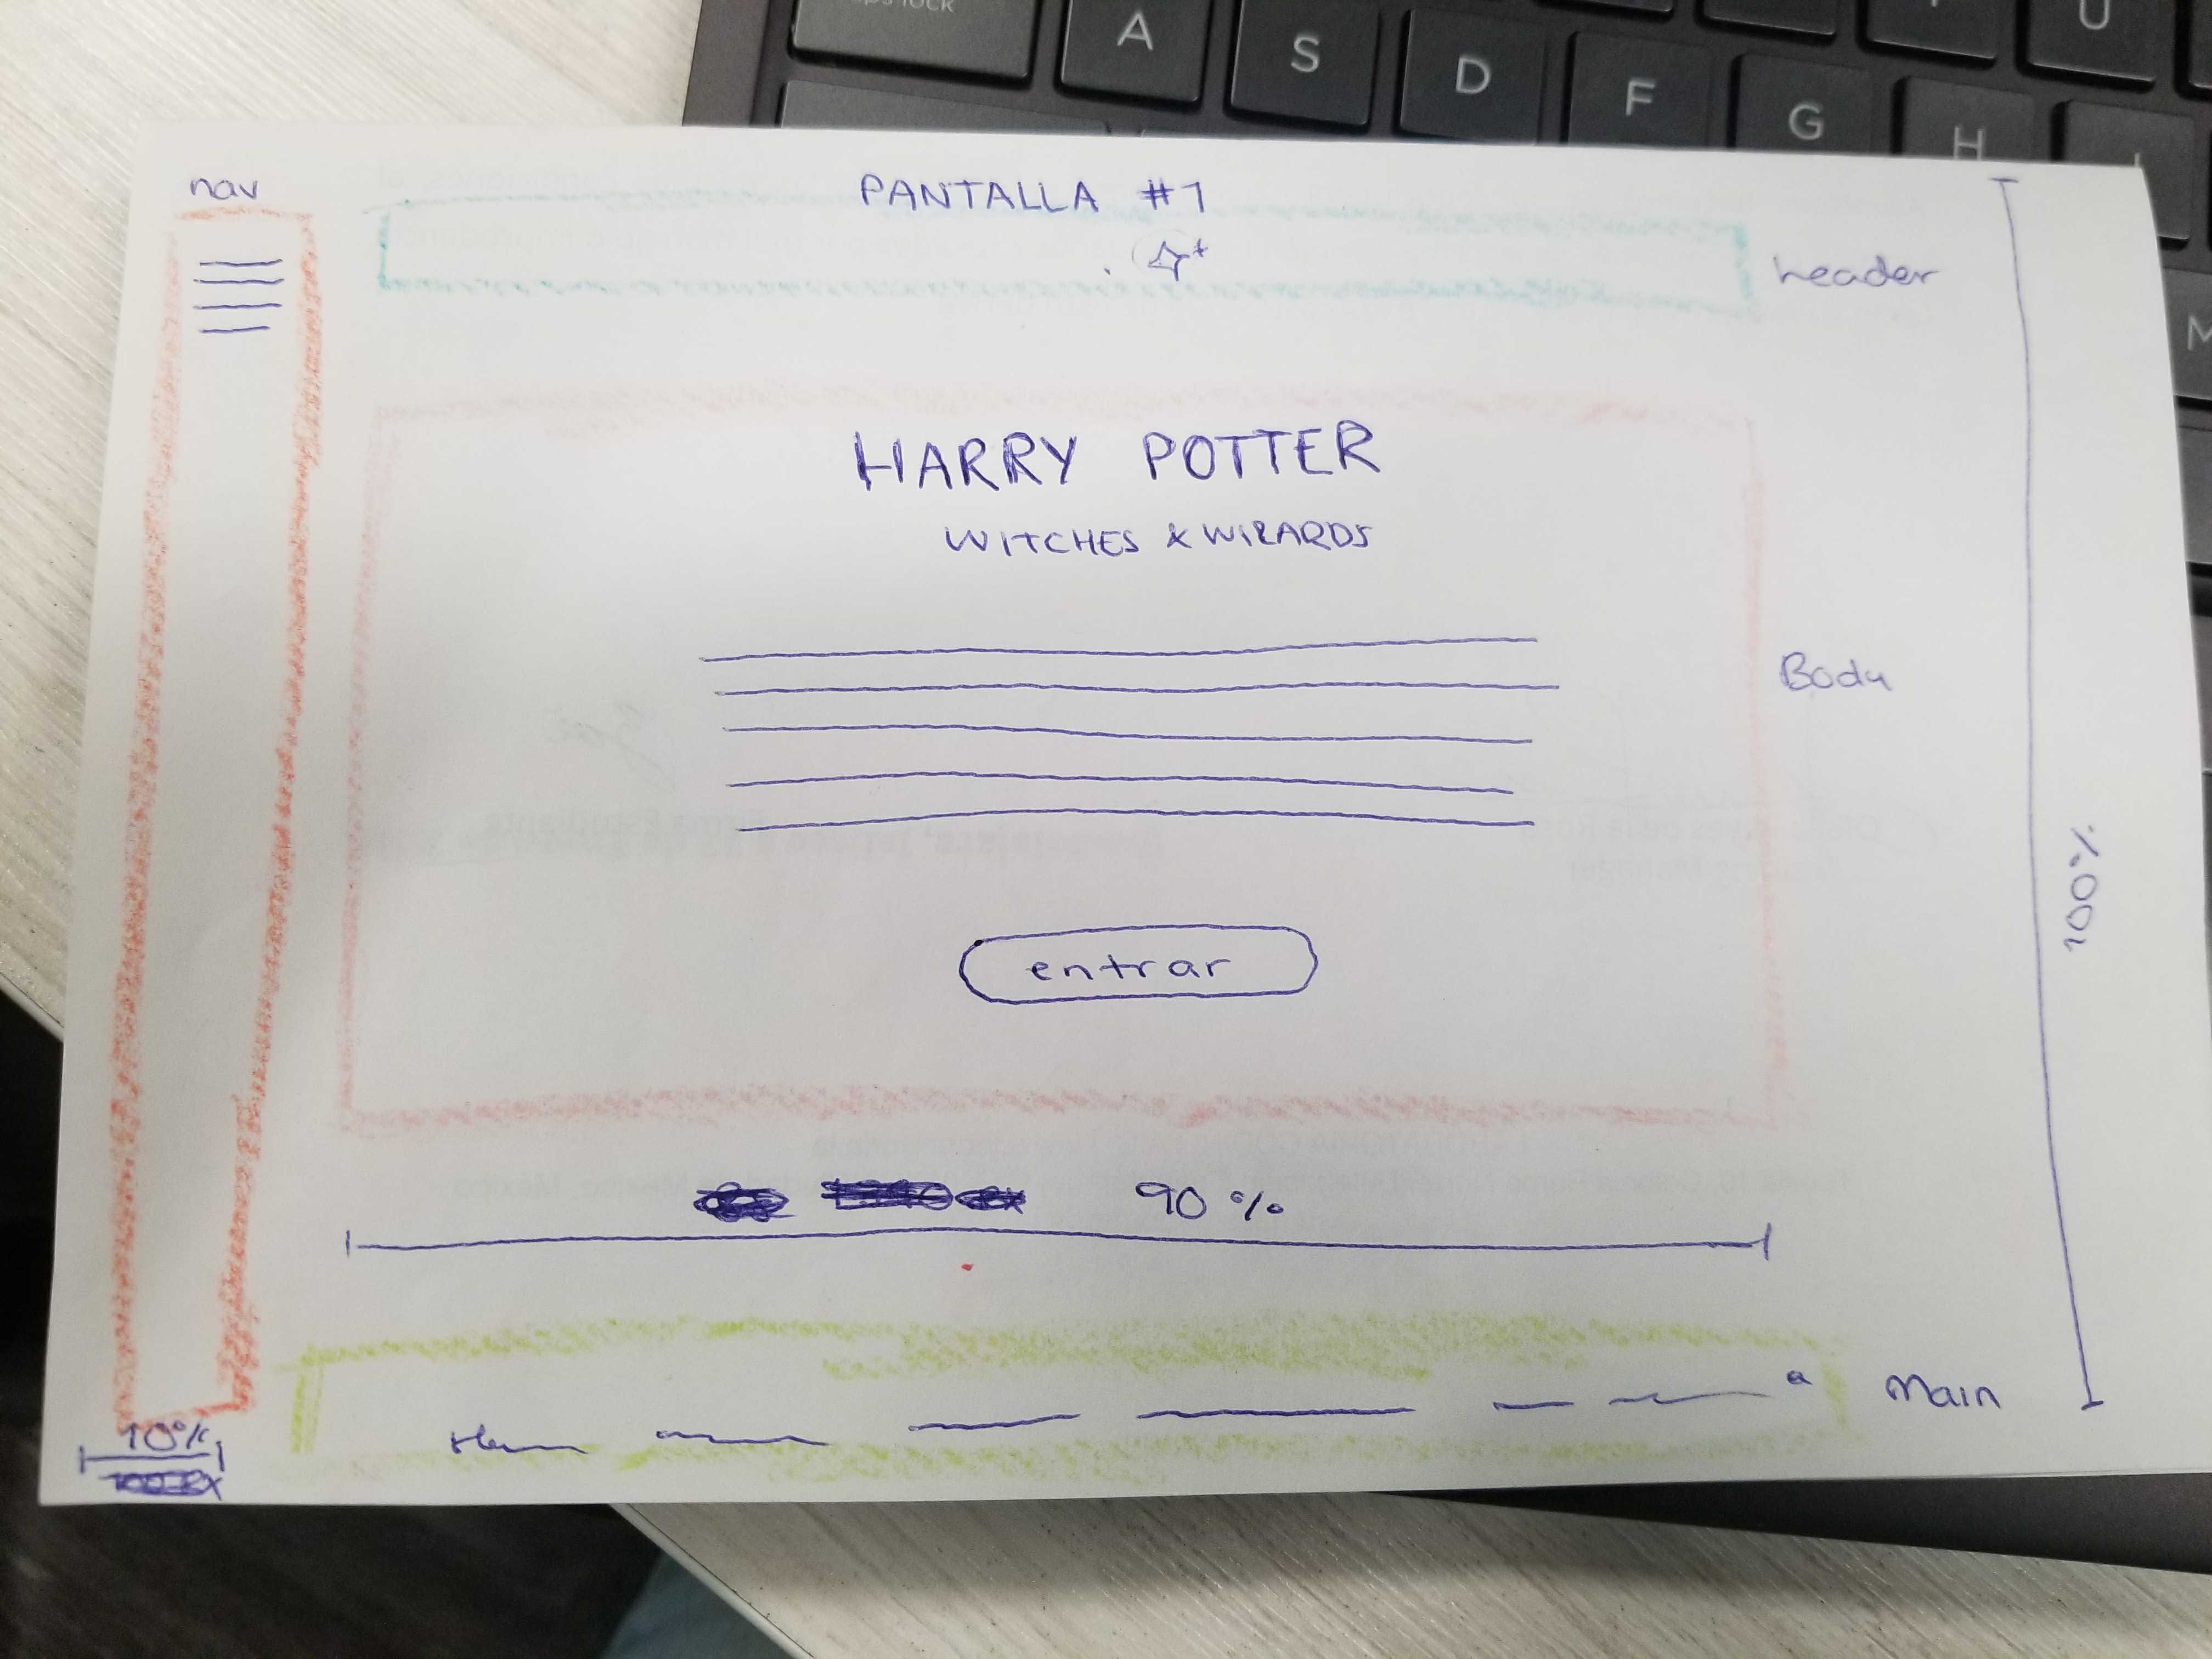 caps lock
A
S
D
F
G
H
U
M
nav
PANTALLA #1
header
HARRY POTTER
WITCHES & WIZARDS
Body
100%
entrar
90 %
Main
10%